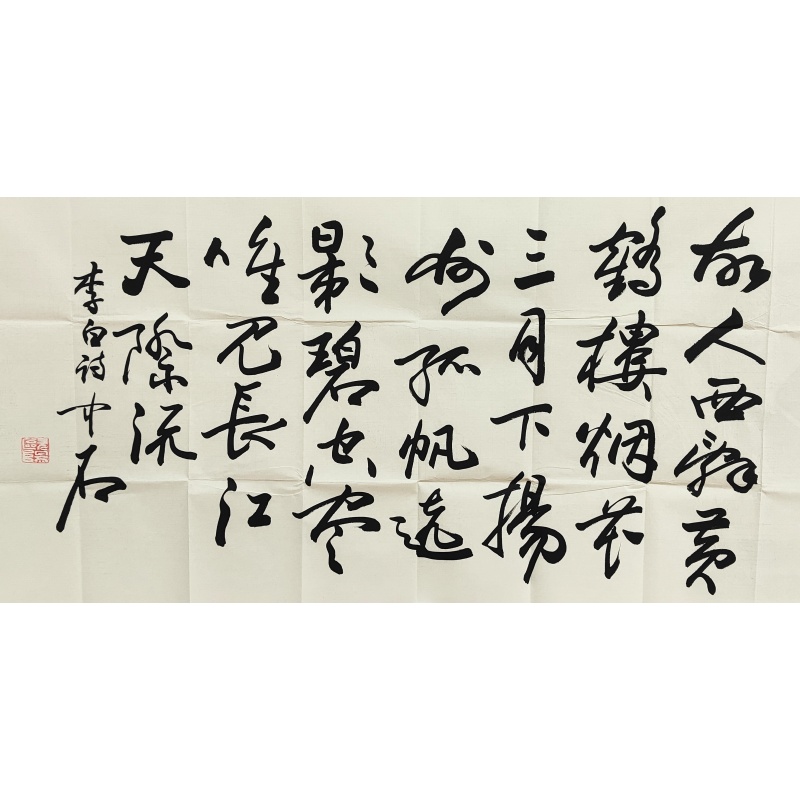 故人西辞黄
鹤樓烟花
三月下揚
州孤帆遠
影碧空尽
唯见長江
天際流
李白诗中石